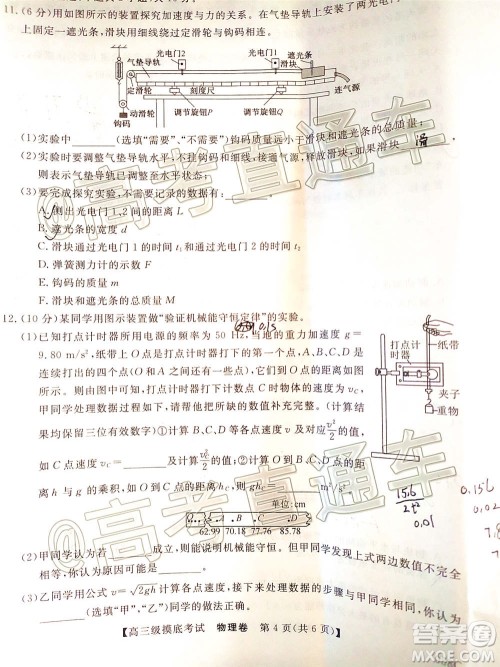 11.(6分)用如图所示的装置探究加速度与力的关系。在气垫导轨上安装了两光电门
上固定一遮光条,滑块用细线绕过定滑轮与钩码相连。
光电门1
光电门2
气垫导轨
定滑轮
刻度尺
连气源
动滑轮
调节旋钮P
调节旋钮Q
钩码
(1)实验中______(选填“需要”、“不需要”)钩码的质量远小于滑块和遮光条的总质量;
(2)实验时要调整气垫导轨水平。不挂钩码和细线,接通气源,释放滑块,如果滑块
则表示气垫导轨已调整至水平状态。
(3)要完成探究实验,不需记录的数据有:______。
A.测出光电门1、2间的距离L
B.遮光条的宽度d
C.滑块通过光电门1的时间t1和通过光电门2的时间t2
D.弹簧测力计的示数F
E.滑块和遮光条的总质量M
12.(10分)某同学用图示装置做“验证机械能守恒定律”的实验。
(1)已知打点计时器所用电源的频率为50 Hz,当地的重力加速度g=
9.80 m/s²,纸带上O点是打点计时器打下的第一个点,A、B、C、D是
连续打出的点(O和A之间还有其它点),它们到O点的距离如图
所示。则由图中数据,可知打点计时器打下点C时物体的速度是vC,
甲同学处理数据过程如下,请帮他把所缺的数值补充完整。(计算结
果均保留三位有效数字)计算B、C、D等各点速度v及对应的v²/2的值,
如C点速度vC=______m/s、vC²/2=______m²/s²;计算各点高度h
与g的乘积,如O点到C点的距离hC,则ghC=______m²/s²。
单位:cm
O A B C D
62.99 70.18 77.76 85.73
打点计时器
纸带
夹子
重物
15.6
2t²
0.01
(2)甲同学认为若______成立,则能说明机械能守恒。但甲同学发现上式两边数值不完全
相等,你认为可能的原因是______。
(3)乙同学用公式v=√2gh计算各点速度,接下来处理数据的步骤与甲同学一样。则乙同学的方法
______(选填“正确”或“不正确”)。
高三级摸底考试 物理卷 第4页(共6页)